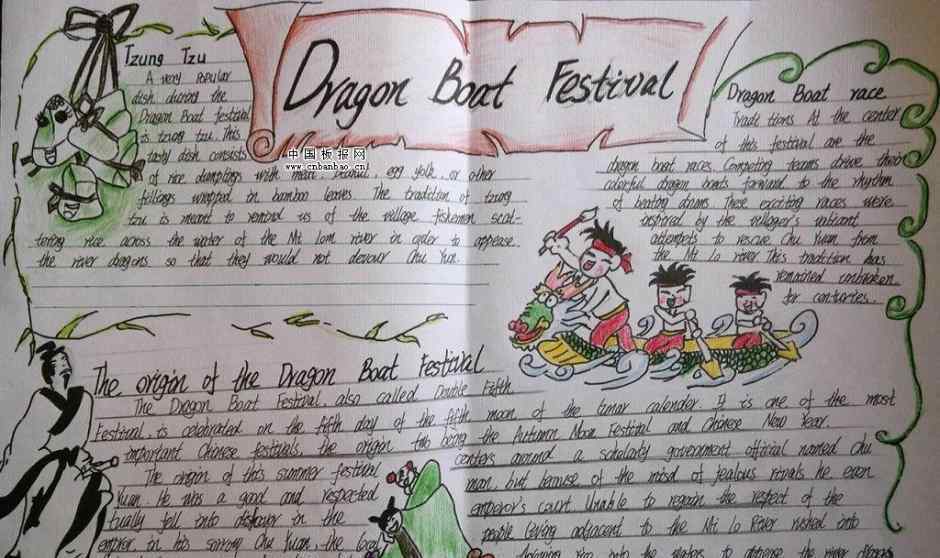 Dragon Boat Festival
中国板报网
www.cnbanbao.cn
Tzung Tzu
A very popular
dish during the
Dragon Boat festival
is tzung tzu. This
tasty dish consists
of rice dumplings with meat, peanut, egg yolk, or other
fillings wrapped in bamboo leaves. The tradition of tzung
tzu is meant to remind us of the village fishermen scat-
tering rice across the water of the Mi Lom river in order to appease
the river dragons so that they would not devour Chu Yun.
Dragon Boat race
Traditions At the center
of this festival are the
dragon boat races. Competing teams drive their
colorful dragon boats forward to the rhythm
of beating drums. These exciting races were
inspired by the villager's valiant
attempts to rescue Chu Yuan from
the Mi Lo river. This tradition has
remained unbroken
for centuries.
The origin of the Dragon Boat Festival
The Dragon Boat Festival, also called Double Fifth
Festival, is celebrated on the fifth day of the fifth moon of the lunar calender. It is one of the most
important Chinese festivals, the origin being the Autumn Moon Festival and Chinese New Year.
The origin of this summer festival centers around a scholarly government official named Chu
Yuan. He was a good and respected man, but because of the misd of jealous rivals he even
tually fell into disfavor in the emperor's court. Unable to regain the respect of the
empror in his sorrow Chu Yuan, the local people living adjacent to the Mi Lo River rushed into
into the waters to appease the river